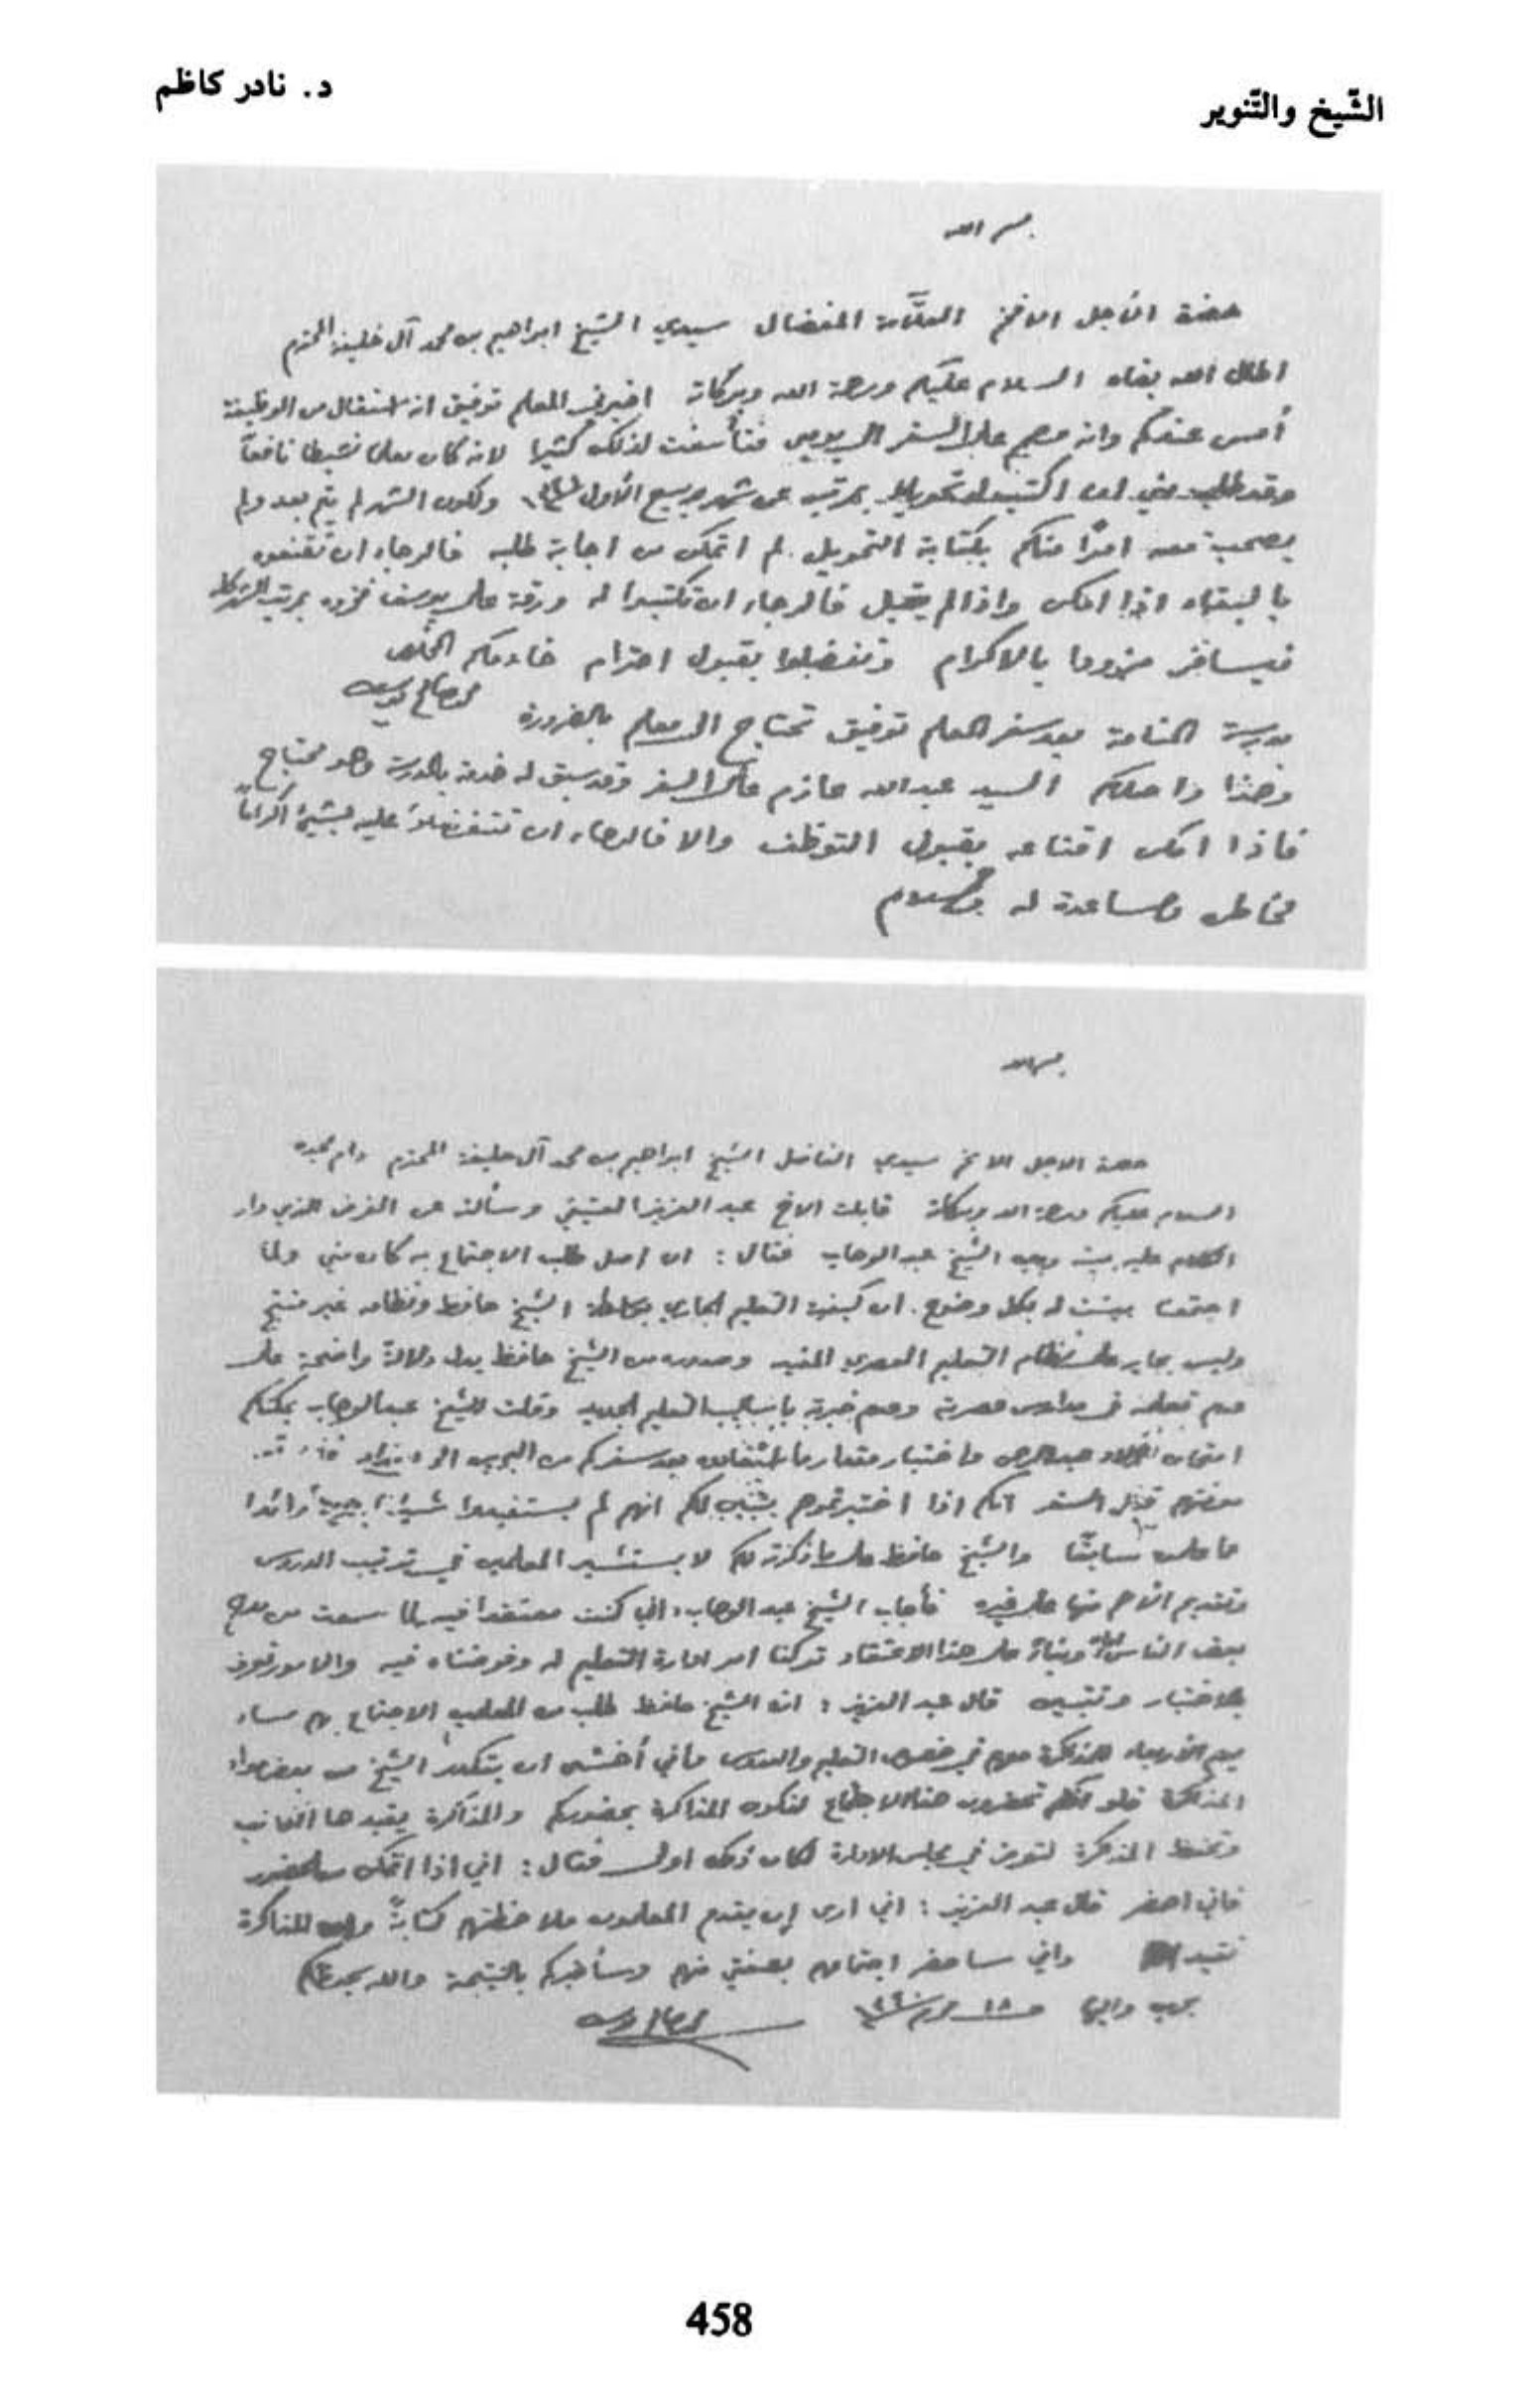 الشّيخ والتّنوير
د. نادر كاظم
بسم الله
حضرة الأجل الافخم العلّامة المفضال سيدي الشيخ ابراهيم بن محمد آل خليفة المحترم
اطال الله بقاه السلام عليكم ورحمة الله وبركاته اخبرني المعلم توفيق انه استقال من الوظيفة
أمس عندكم وانه مصمم على السفر الى بومبي فتأسفت لذلك كثيرا لانه كان معلما نشيطا نافعاً
وقد طلب مني ان اكتب له تحويلا بمرتبه عن شهر ربيع الأول ولكون الشهر لم يتم بعد ولم
يصحب معه امرًا منكم بكتابة التحويل لم اتمكن من اجابة طلبه فالرجاء ان تقنعوه
بالبقاء اذا امكن واذا لم يقبل فالرجاء ان تكتبوا له ورقة على يوسف فخرو بمرتب الشهر
فيسافر مزودا بالاكرام وتفضلوا بقبول احترام خادمكم المخلص
محمد صالح يوسف
مدرسة المنامة بعد سفر المعلم توفيق تحتاج الى معلم بالضرورة
وهذا واصلكم السيد عبد الله عازم على السفر وقد سبق له خدمة بالمدرسة وهو محتاج
فاذا امكن اقناعه بقبول التوظف والا فالرجاء ان تتفضلوا عليه بشيئ اكراماً
ومساعدة له والسلام
بسم الله
حضرة الاجل الافخم سيدي الفاضل الشيخ ابراهيم بن محمد آل خليفة المحترم دام مجده
السلام عليكم ورحمة الله وبركاته قابلت الاخ عبد العزيز العتيقي وسألته عن الغرض الذي دار
الكلام عليه بينه وبين الشيخ عبد الوهاب فقال : ان اصل طلب الاجتماع به كان مني ولما
اجتمعنا بينت له بكل وضوح . ان كيفية التعليم الجاري بواسطة الشيخ حافظ ونظامه غير منتج
وليس بجاير على نظام التعليم العصري المفيد وصدوره من الشيخ حافظ يدل دلالة واضحة على
عدم تعلمه في مدارس عصرية وعدم خبرته باساليب التعليم الجديد وقلت للشيخ عبد الوهاب يمكنكم
امتحان واختبار مقدار ما بعد سفركم من البحرين الى
معرفتهم قبل السفر انكم اذا اختبرتموهم يتبين لكم انهم لم يستفيدوا شيئا زائدا
سابقًا والشيخ حافظ على ما ذكرته لكم لا يستشير المعلمين في ترتيب الدروس
وتقديم الأهم منها على غيره فأجاب الشيخ عبد الوهاب : اني كنت معتقدا فيه لما سمعت من مدح
بعض الناس وبناءً على هذا الاعتقاد تركنا امر ادارة التعليم له وفوضناه فيه والامور تعرف
بالاختبار وتتبين قال عبد العزيز : ان الشيخ حافظ طلب من المعلمين الاجتماع بهم مساء
يوم الأربعاء للمذاكرة معهم في خصوص التعليم والدروس واني أخشى ان يتكدر الشيخ من بعض مواد
المذاكرة فلو انكم تحضرون هذا الاجتماع لتكون المذاكرة بحضوركم والمذاكرة يقيدها الكاتب
وتحفظ المذكرة لتعرض في مجلس الادارة لكان ذلك اولى فقال : اني اذا اتمكن سأحضر
فاني احضر قال عبد العزيز : اني ارى ان يقدم المعلمون ملاحظتهم كتابةً وان المذاكرة
تقيد واني سأحضر اجتماعهم بصفتي منهم وسأخبركم بالنتيجة والله يحفظكم
١٨ محرم
458